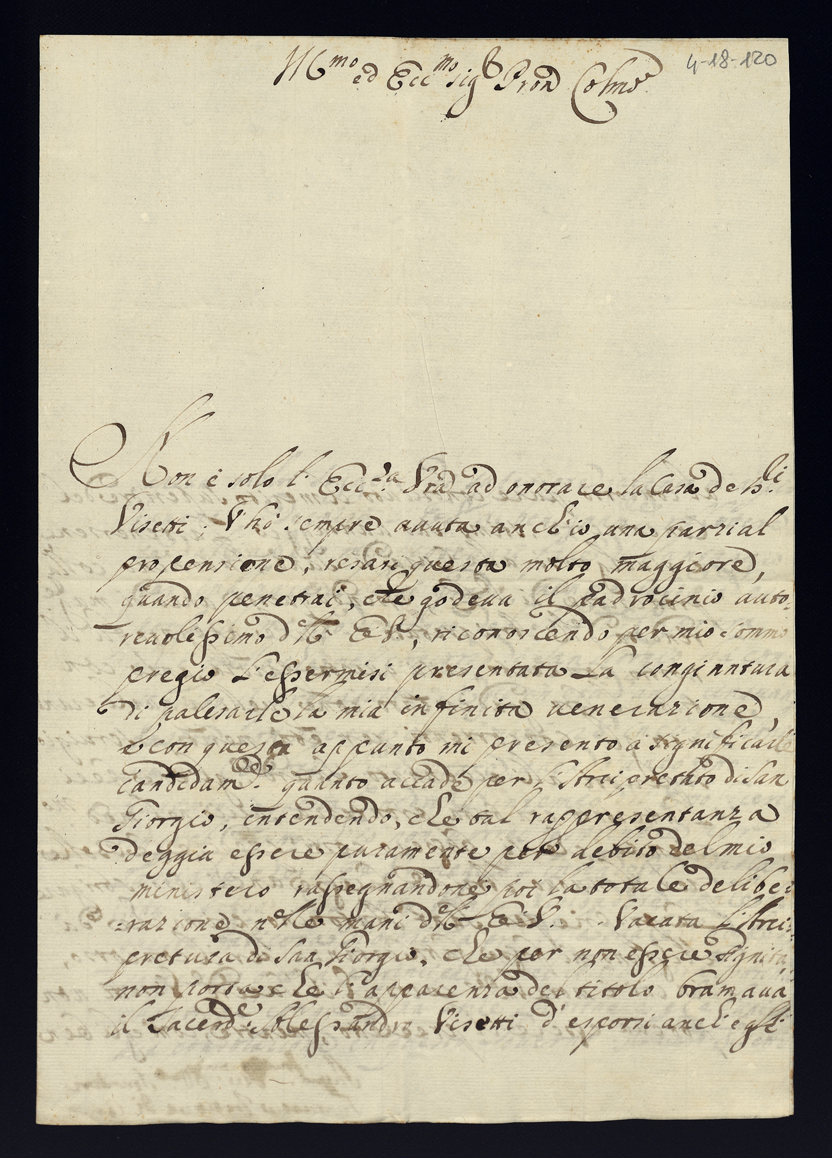 4-18-120
Ill.mo ed Ecc.mo Sig.r Pron Colmo
Non è solo l' Ecc.za Vra ad onorare la Casa de Sig.ri
Visetti; V'hò sempre avuta anch'io una parzial
propensione, resasi questa molto maggiore,
quando penetrai, che godeva il padrocinio auto=
revolissimo dell' E.V., riconoscendo per mio sommo
pregio l'essermisi presentata la congiuntura
di palesarle la mia infinita venerazione,
e con questa appunto mi presento a significarle
candidam.te quanto accadè per l'Arcipretato di San
Giorgio, intendendo, che tal rappresentanza
deggia essere puramente per debito del mio
ministero rassegnandone poi la totale delibe=
=razione nelle mani dell' E.V. Vacata l'Arci=
pretura di San Giorgio, che per non essere dignità,
non porta che l'apparenza del titolo bramava
il Sacerd.e Alessandro Visetti d'esporsi anch'egli